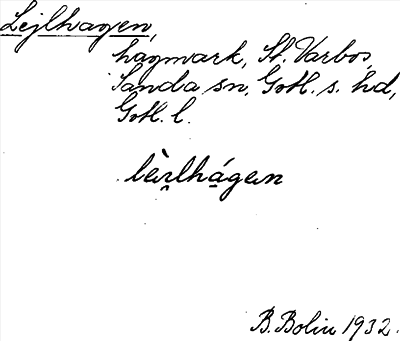 Lejlhagen,
hagmark, St. Varbos,
Sanda sn, Gotl. s. hd,
Gotl. l.
lèi̯lhágan
B. Bolin 1932.